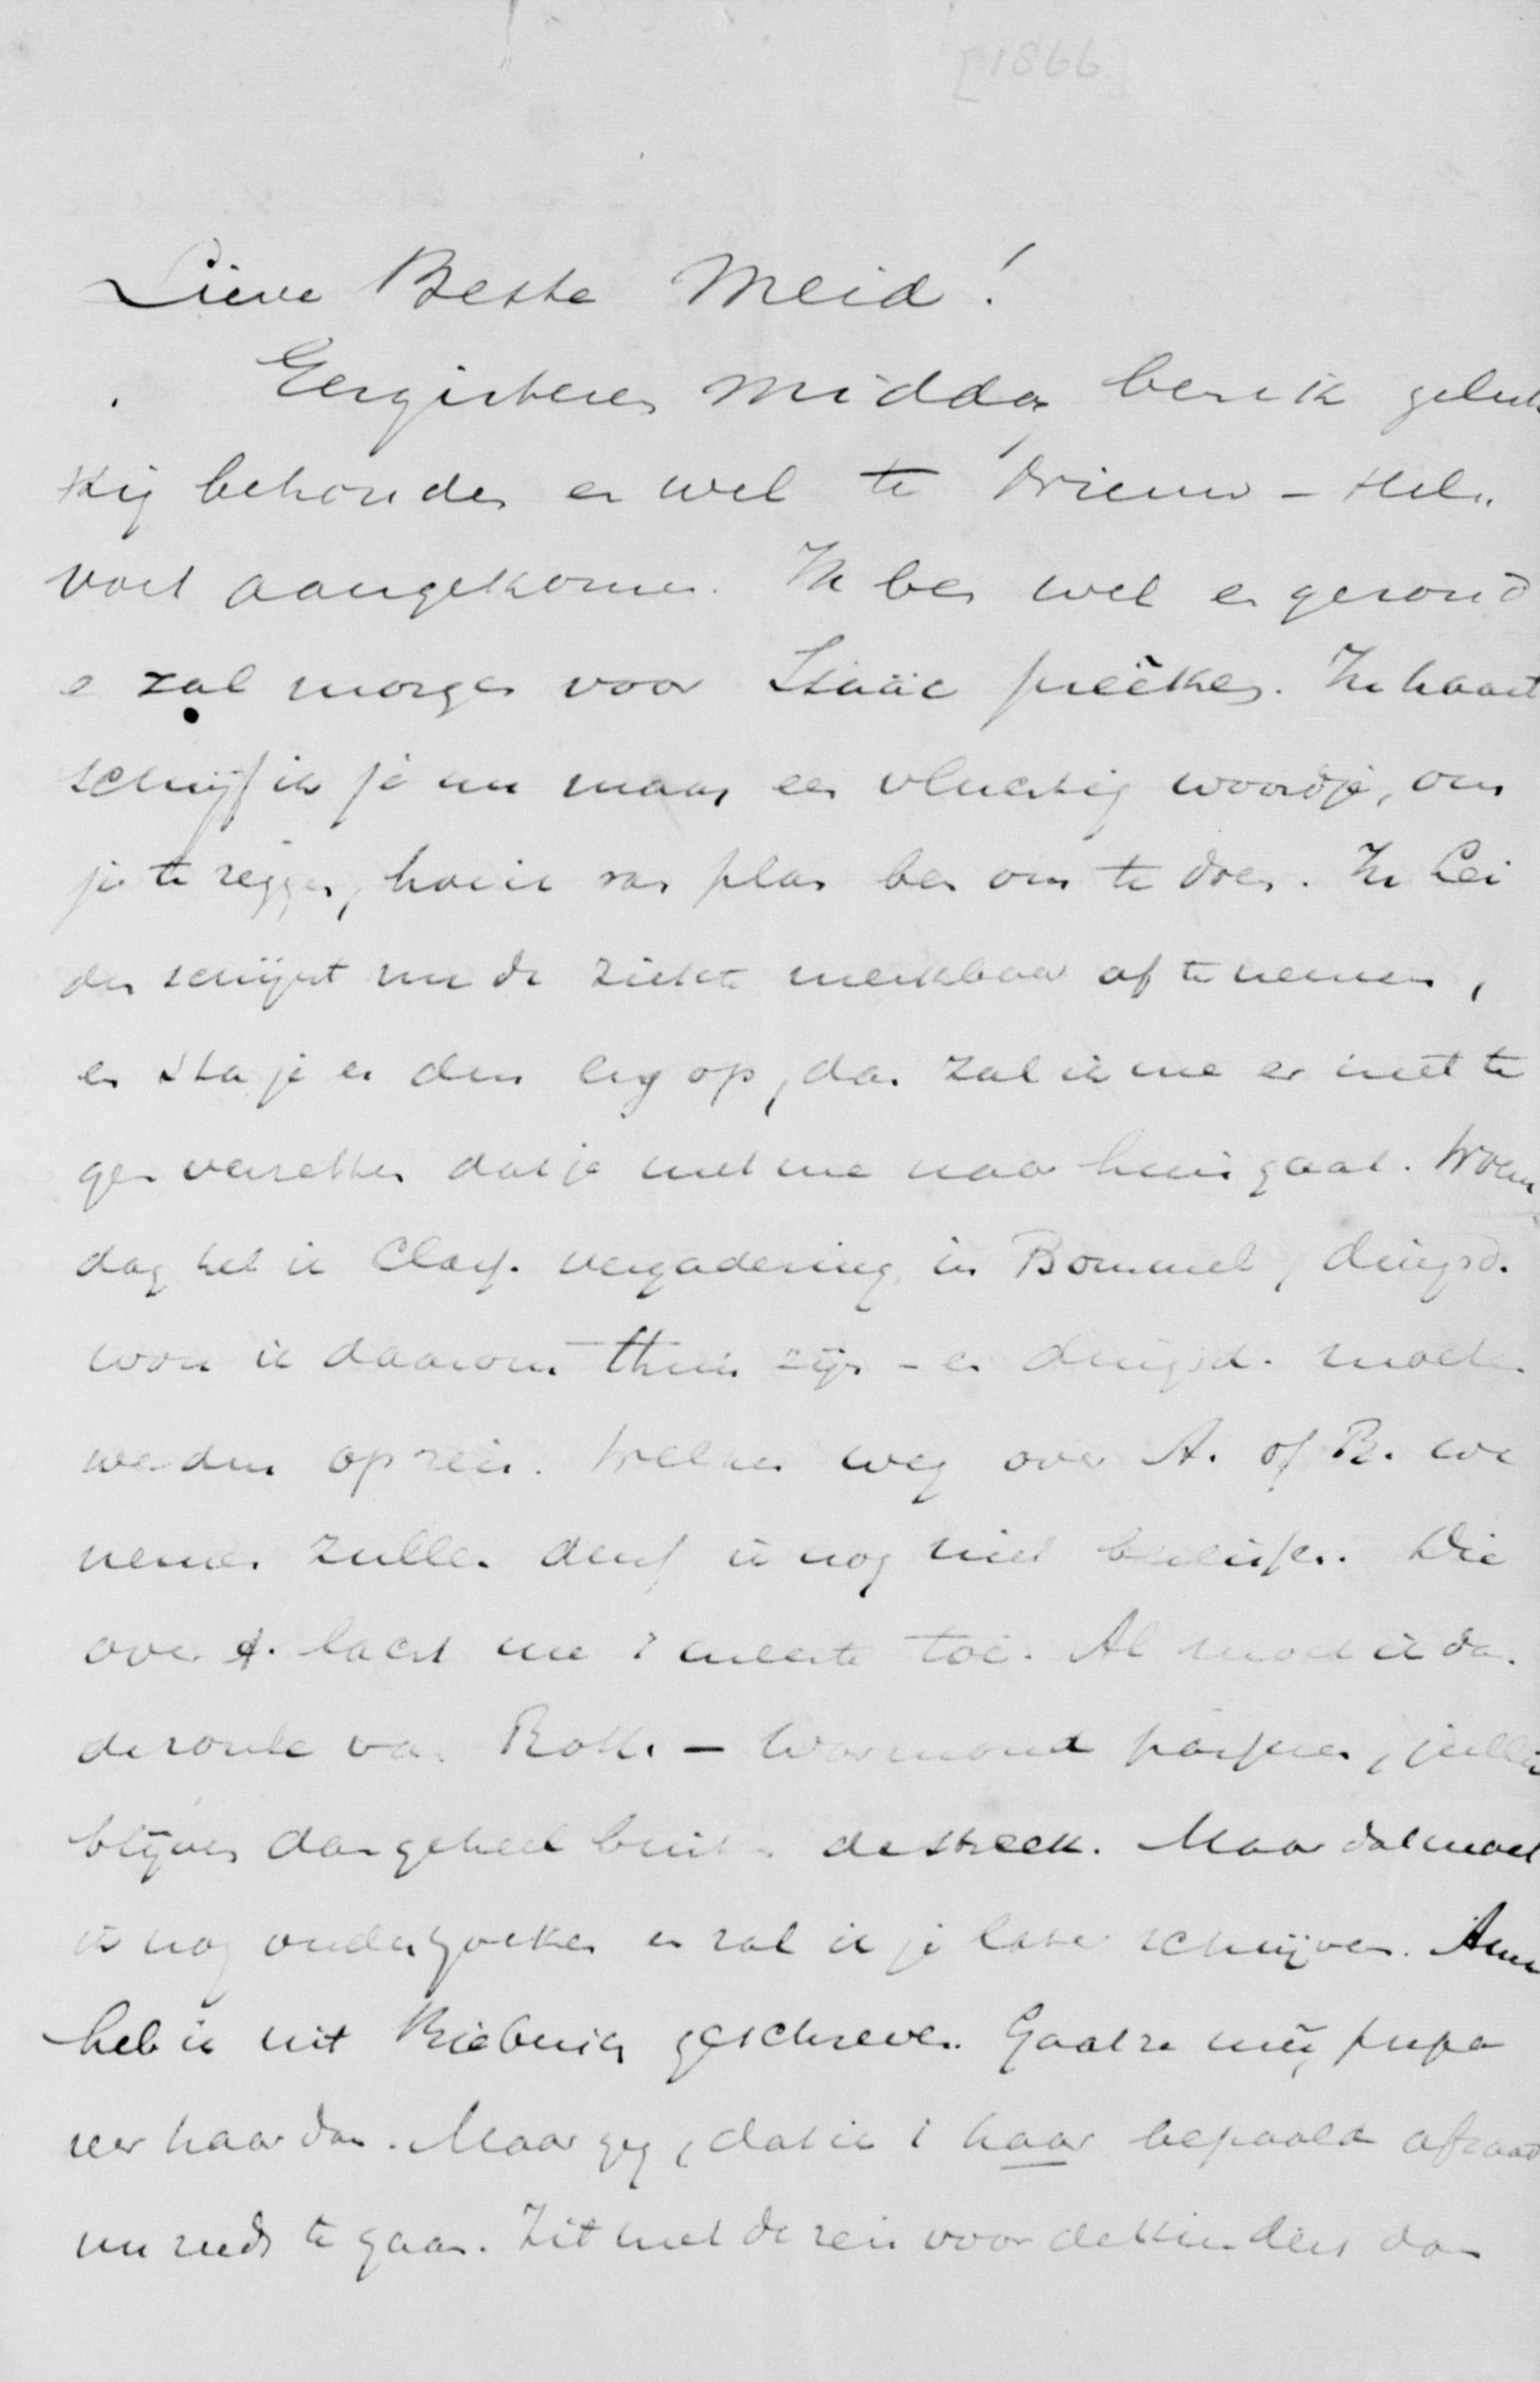 [1866]
Lieve Beste Meid!
Eergisteren midda ben ik geluk
kig behouden en wel te Nieuw-Hel-
voet aangekomen. Ik ben wel en gezond
e zal morgen voor Isaäc preêken. In haast
schrijf ik je nu maar een vluchtig woordje, om
je te zeggen, hoe ik van plan ben om te doen. In Lei
den schijnt nu de ziekte merkbaar af te nemen,
en sta je er dus erg op, dan zal ik me er niet te
gen verzetten dat je met me naar huis gaat. Woens
dag heb ik Class. vergadering in Bommel, dingsd.
wou ik daarom thuis zijn - en dingsd. moeten
we dus op reis. Welken weg over A. of R. we
nemen zullen durf ik nog niet beslissen. Die
over A. lacht me 't meeste toe. Al moet ik dan
de route van Rott. - Warmond passeren, jullie
blijven dan geheel buiten de streek. Maar dat moet
ik nog onderzoeken en zal ik je later schrijven. Anna
heb ik uit geschreven. Gaat ze meê, prepa
reer haar dan. Maar zeg, dat ik 't haar bepaald afraad
nu reeds te gaan. Zit met de reis voor de kinders dan